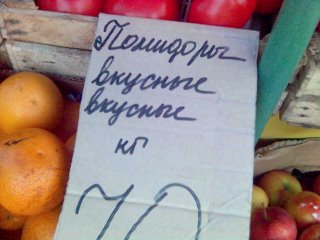 Помидоры
вкусные
вкусные
кг
70